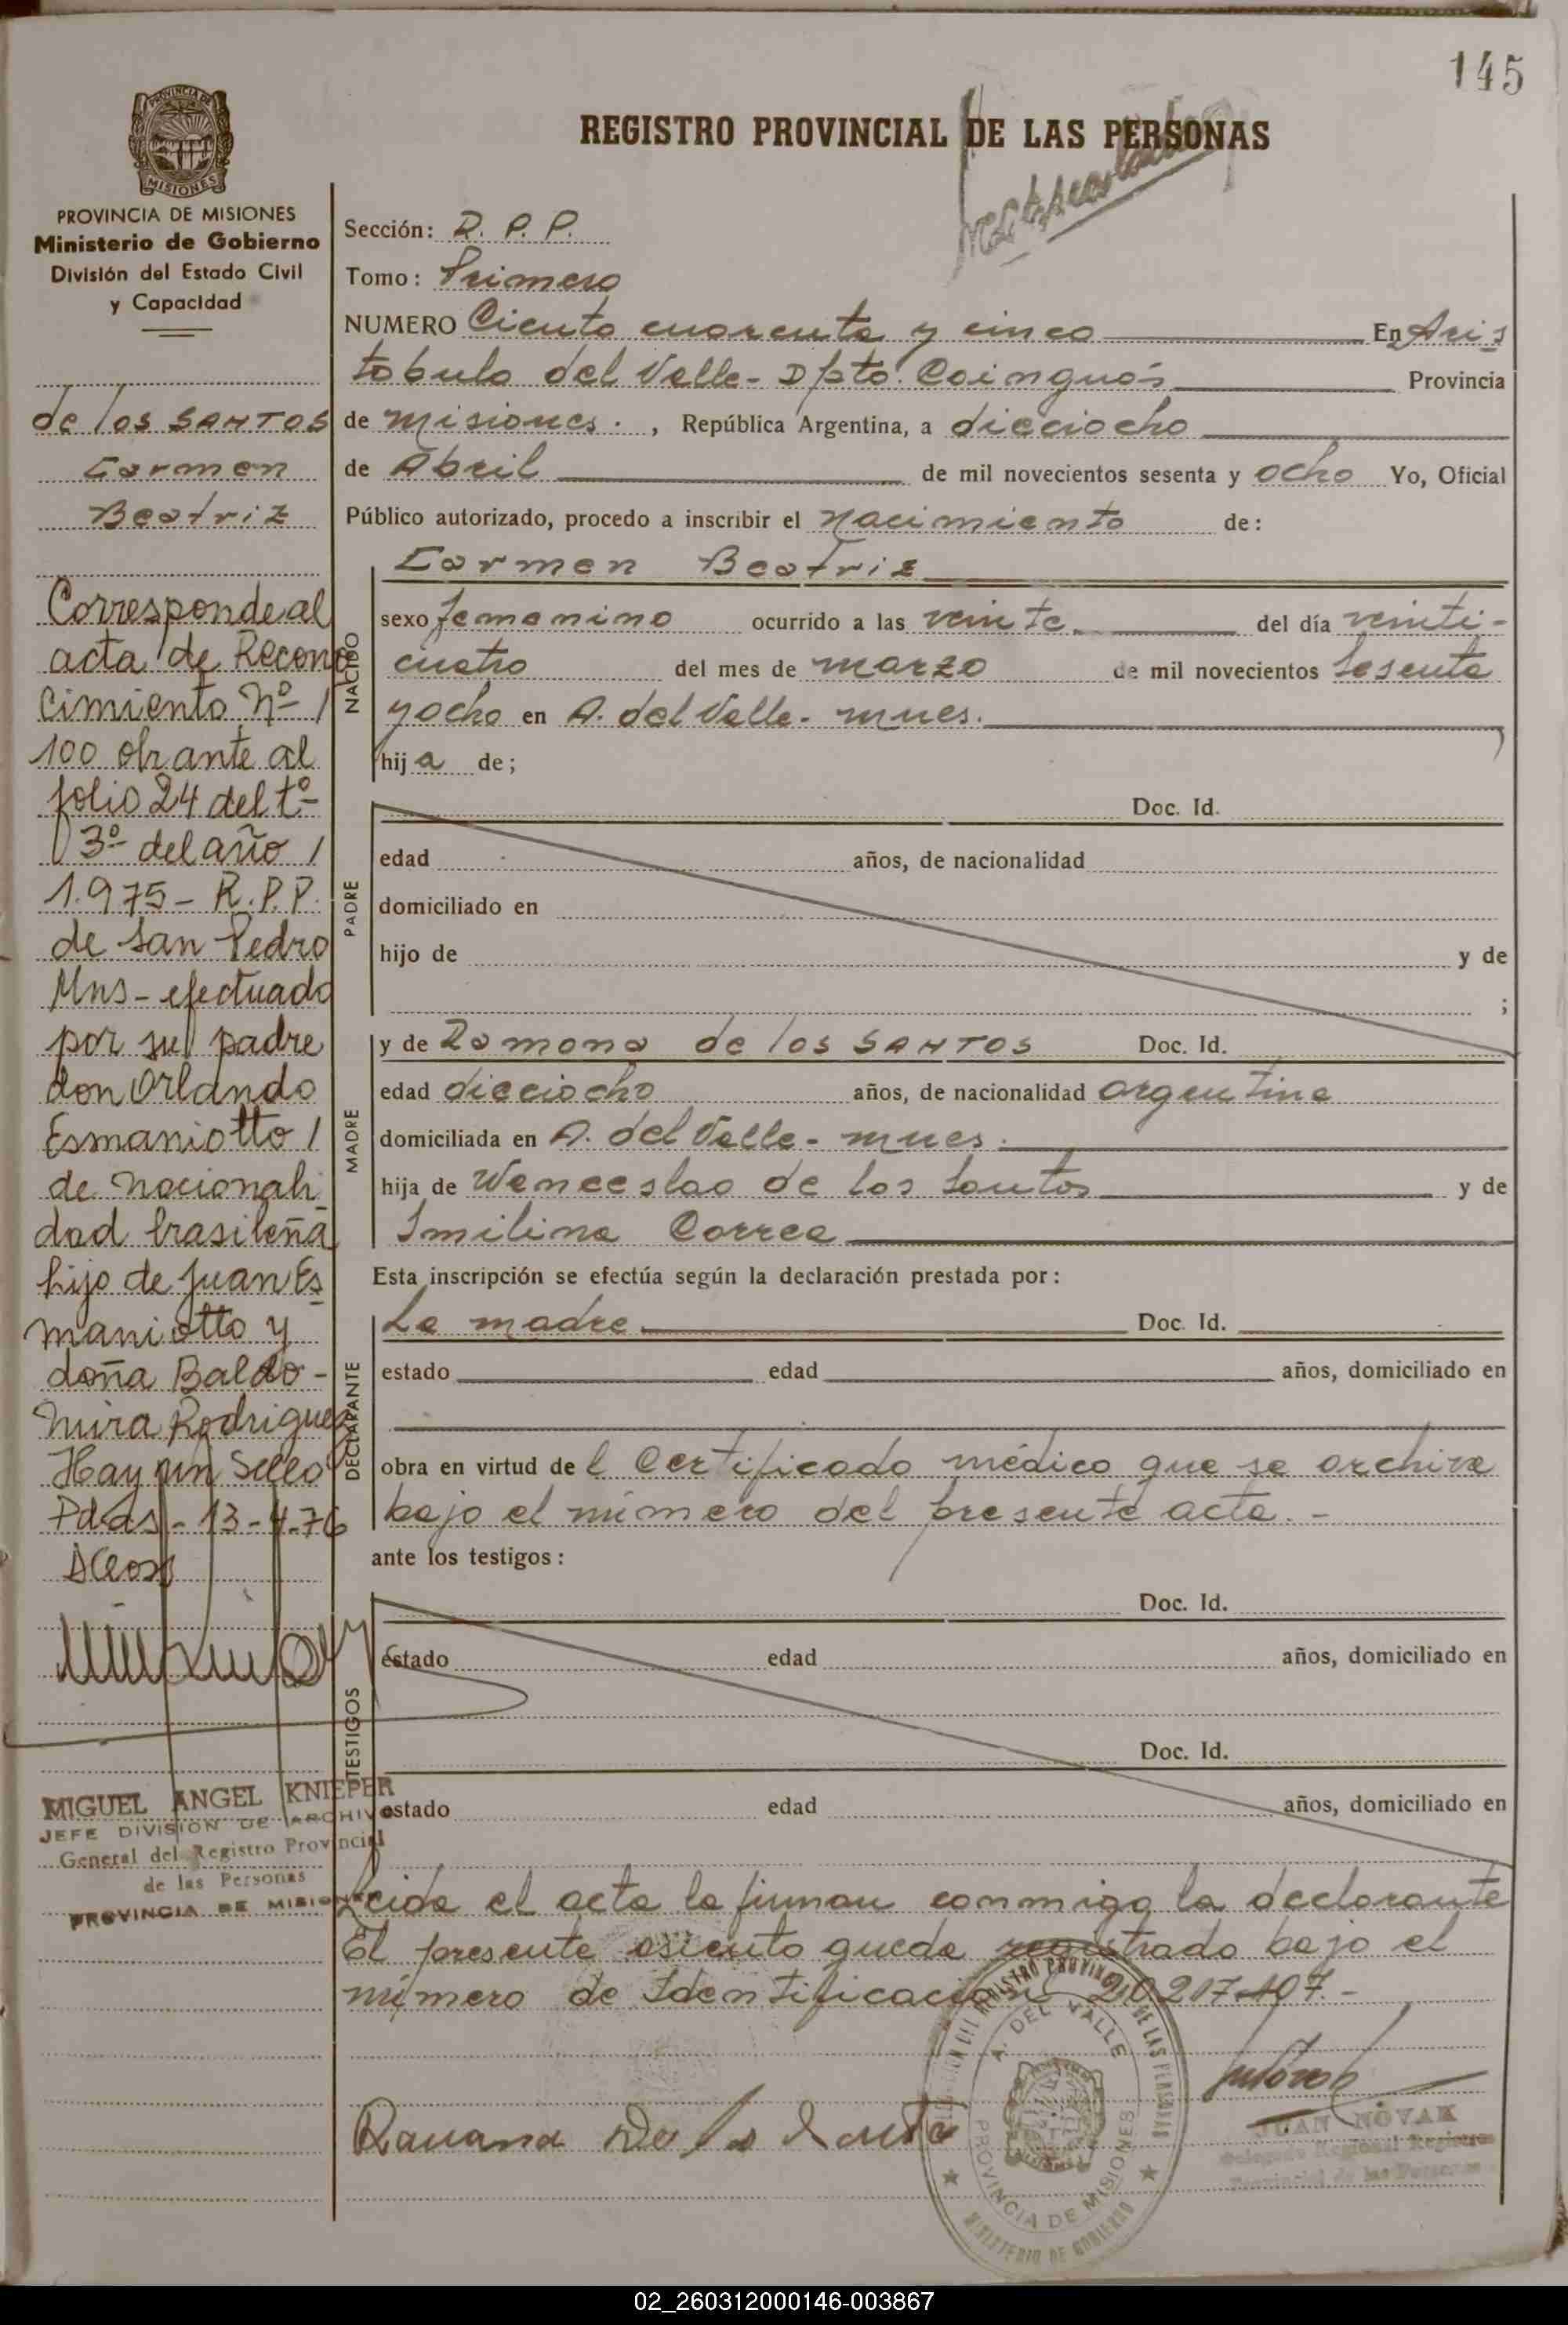 145
REGISTRO PROVINCIAL DE LAS PERSONAS
PROVINCIA DE
MISIONES
PROVINCIA DE MISIONES
Ministerio de Gobierno
División del Estado Civil
y Capacidad
de los SANTOS
Carmen
Beatriz
Corresponde al
acta de Recono
cimiento Nº /
100 obrante al
folio 24 del tº
3º del año /
1.975 - R.P.P.
de San Pedro
Mns - efectuado
por su padre
don Orlando
Esmaniotto /
de nacionali
dad brasileña
hijo de Juan Es
maniotto y
doña Baldo-
mira Rodriguez
Hay un Sello
Pdas - 13-4-76
MIGUEL ANGEL KNIEPER
JEFE DIVISION DE ARCHIVO
General del Registro Provincial
de las Personas
PROVINCIA DE MISIONES
Sección: R. P. P.
Tomo: Primero
NUMERO Ciento cuarenta y cinco En Aris
tobulo del Valle - Dpto. Cainguás Provincia
de Misiones . , República Argentina, a dieciocho
de Abril de mil novecientos sesenta y ocho Yo, Oficial
Público autorizado, procedo a inscribir el Nacimiento de:
NACIDO
Carmen Beatriz
sexo femenino ocurrido a las veinte del día veinti-
cuatro del mes de marzo de mil novecientos sesenta
y ocho en A. del Valle - mnes.
hij a de;
PADRE
Doc. Id.
edad años, de nacionalidad
domiciliado en
hijo de y de
;
MADRE
y de Ramona de los SANTOS Doc. Id.
edad dieciocho años, de nacionalidad argentina
domiciliada en A. del Valle - mnes.
hija de Wenceslao de los Santos y de
Imilina Correa
Esta inscripción se efectúa según la declaración prestada por:
DECLARANTE
La madre Doc. Id.
estado edad años, domiciliado en
obra en virtud de l Certificado médico que se archiva
bajo el número del presente acta. -
ante los testigos:
TESTIGOS
Doc. Id.
estado edad años, domiciliado en
Doc. Id.
estado edad años, domiciliado en
Leida el acta la firman conmigo la declarante
El presente asiento queda registrado bajo el
número de Identificación 20217.107.-
Ramona De los Santo
A. DEL VALLE
PROVINCIA DE MISIONES
MINISTERIO DE GOBIERNO
JUAN NOVAK
Delegado Regional Registro
Provincial de las Personas
02_260312000146-003867